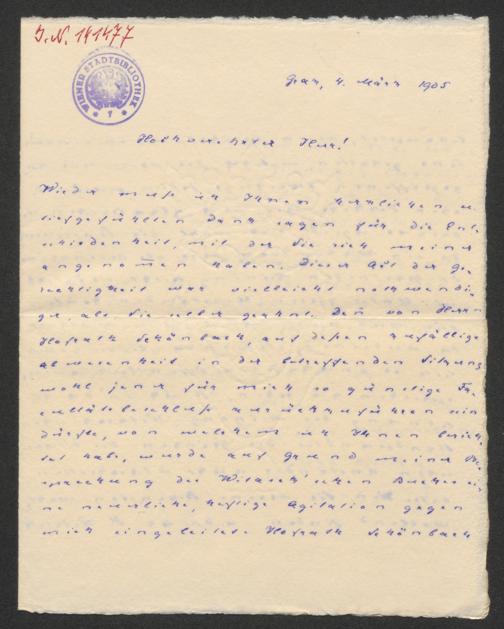 J. N. 141477
WIENER STADTBIBLIOTHEK
Graz, 4. März 1905
Hochverehrter Herr!
Wieder muß ich Ihnen herzlichen u.
tiefgefühlten Dank sagen für die Ent-
schiedenheit, mit der Sie sich meiner
angenom̅en haben. Dieser Act der Ge-
rechtigkeit war vielleicht nothwendi-
ger, als Sie selber geahnt. Den von Herrn
Hofrath Schönbach, auf deßen zufällige
Abwesenheit in der betreffenden Sitzung
wohl jener für mich so günstige Fa-
cultätsbeschluß zurückzuführen sein
dürfte, von welchem ich Ihnen berich-
tet habe, wurde auf Grund meiner Be-
sprechung des Buches ei-
ne neuerliche, heftige Agitation gegen
mich eingeleitet. Hofrath Schönbach